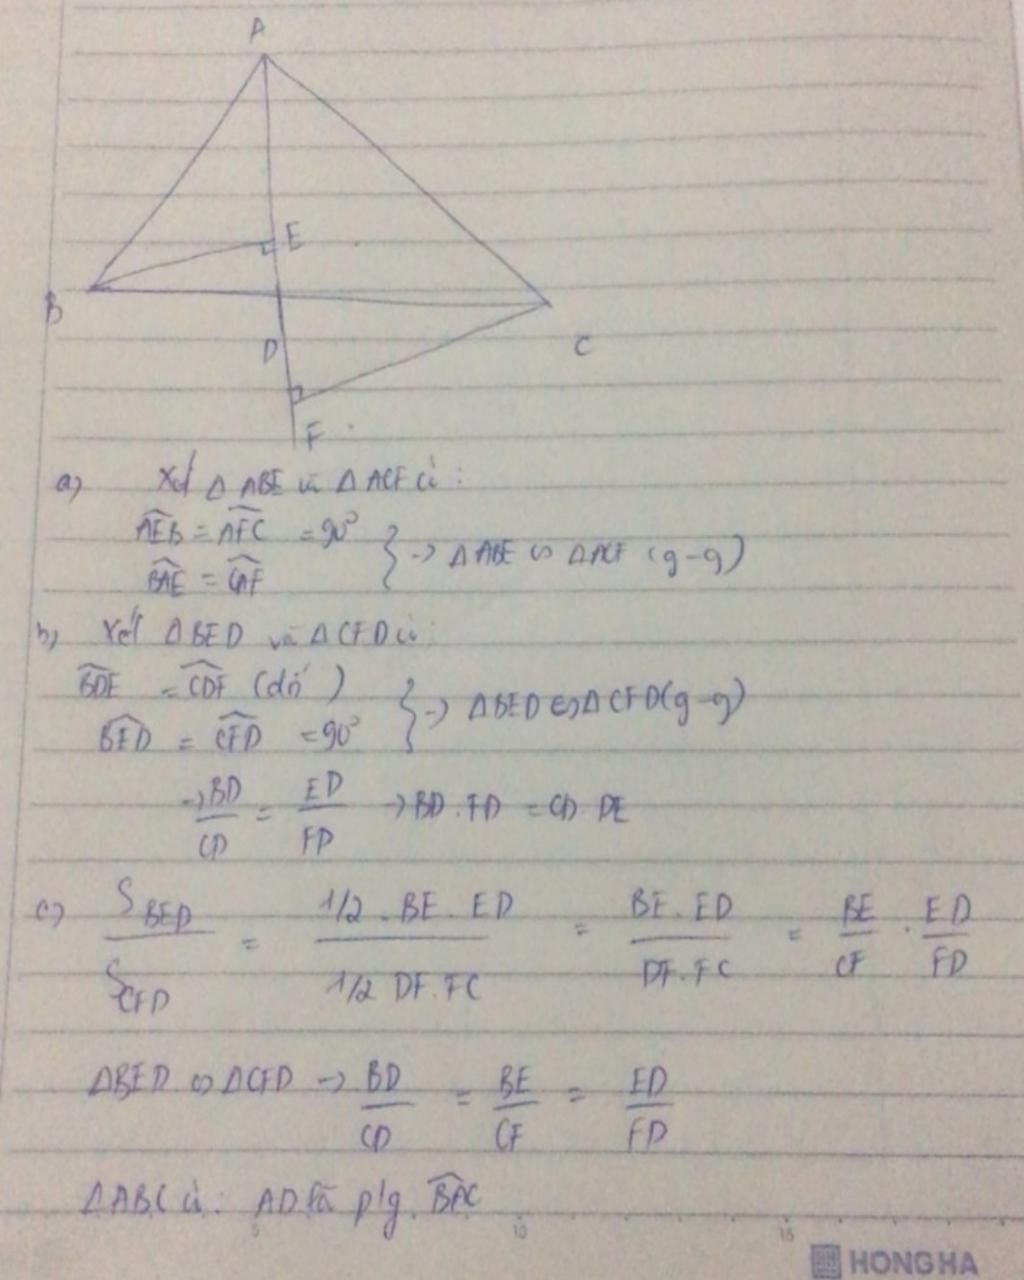 A
E
B
D
C
F
a) Xét Δ ABE và Δ ACF có:
\widehat{AEB} = \widehat{AFC} = 90°
\widehat{BAE} = \widehat{CAF} } → Δ ABE ∽ Δ ACF (g-g)
b) Xét ΔBED và ΔCFD có:
\widehat{BDE} = \widehat{CDF} (đđ)
\widehat{BED} = \widehat{CFD} = 90° } → ΔBED ∽ ΔCFD (g-g)
→ BD/CD = ED/FD → BD . FD = CD . DE
c) S_BED / S_CFD = 1/2 . BE . ED / 1/2 DF . FC = BE . ED / DF . FC = BE/CF . ED/FD
ΔBED ∽ ΔCFD → BD/CD = BE/CF = ED/FD
ΔABC có: AD là p/g \widehat{BAC}
5 10 15
HONG HA